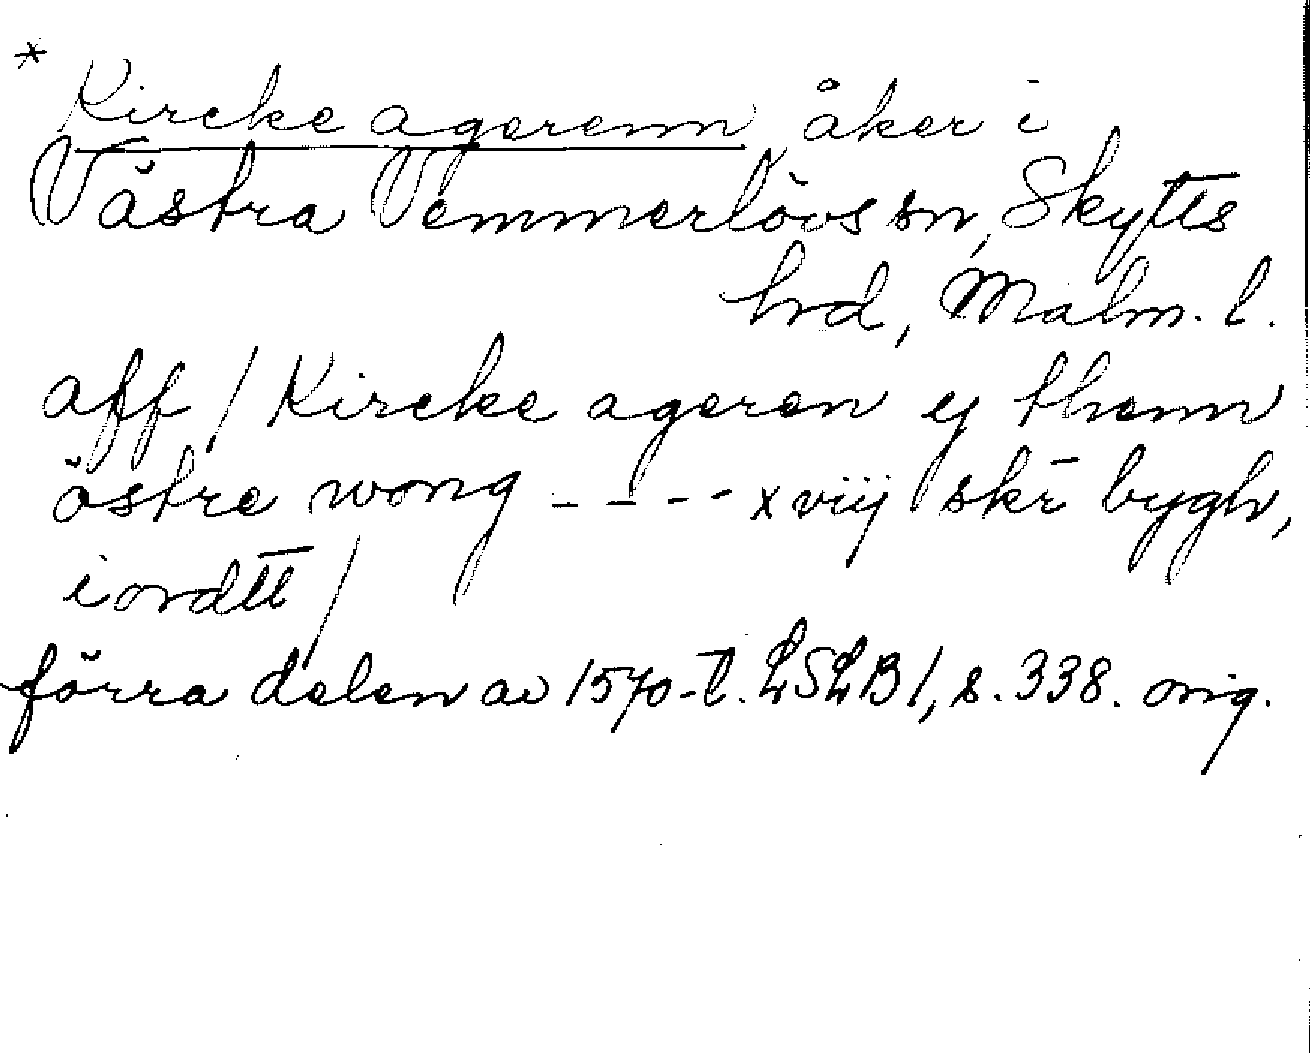 * Kircke agerenn åker i
Västra Vemmerlövs sn, Skytts
hrd, Malm. l.
aff / Kircke ageren ej thenn
östre wong - - - - xviij skr̄ bygh,
iordtt /
förra delen av 1570-t. LSLB 1, s. 338. orig.